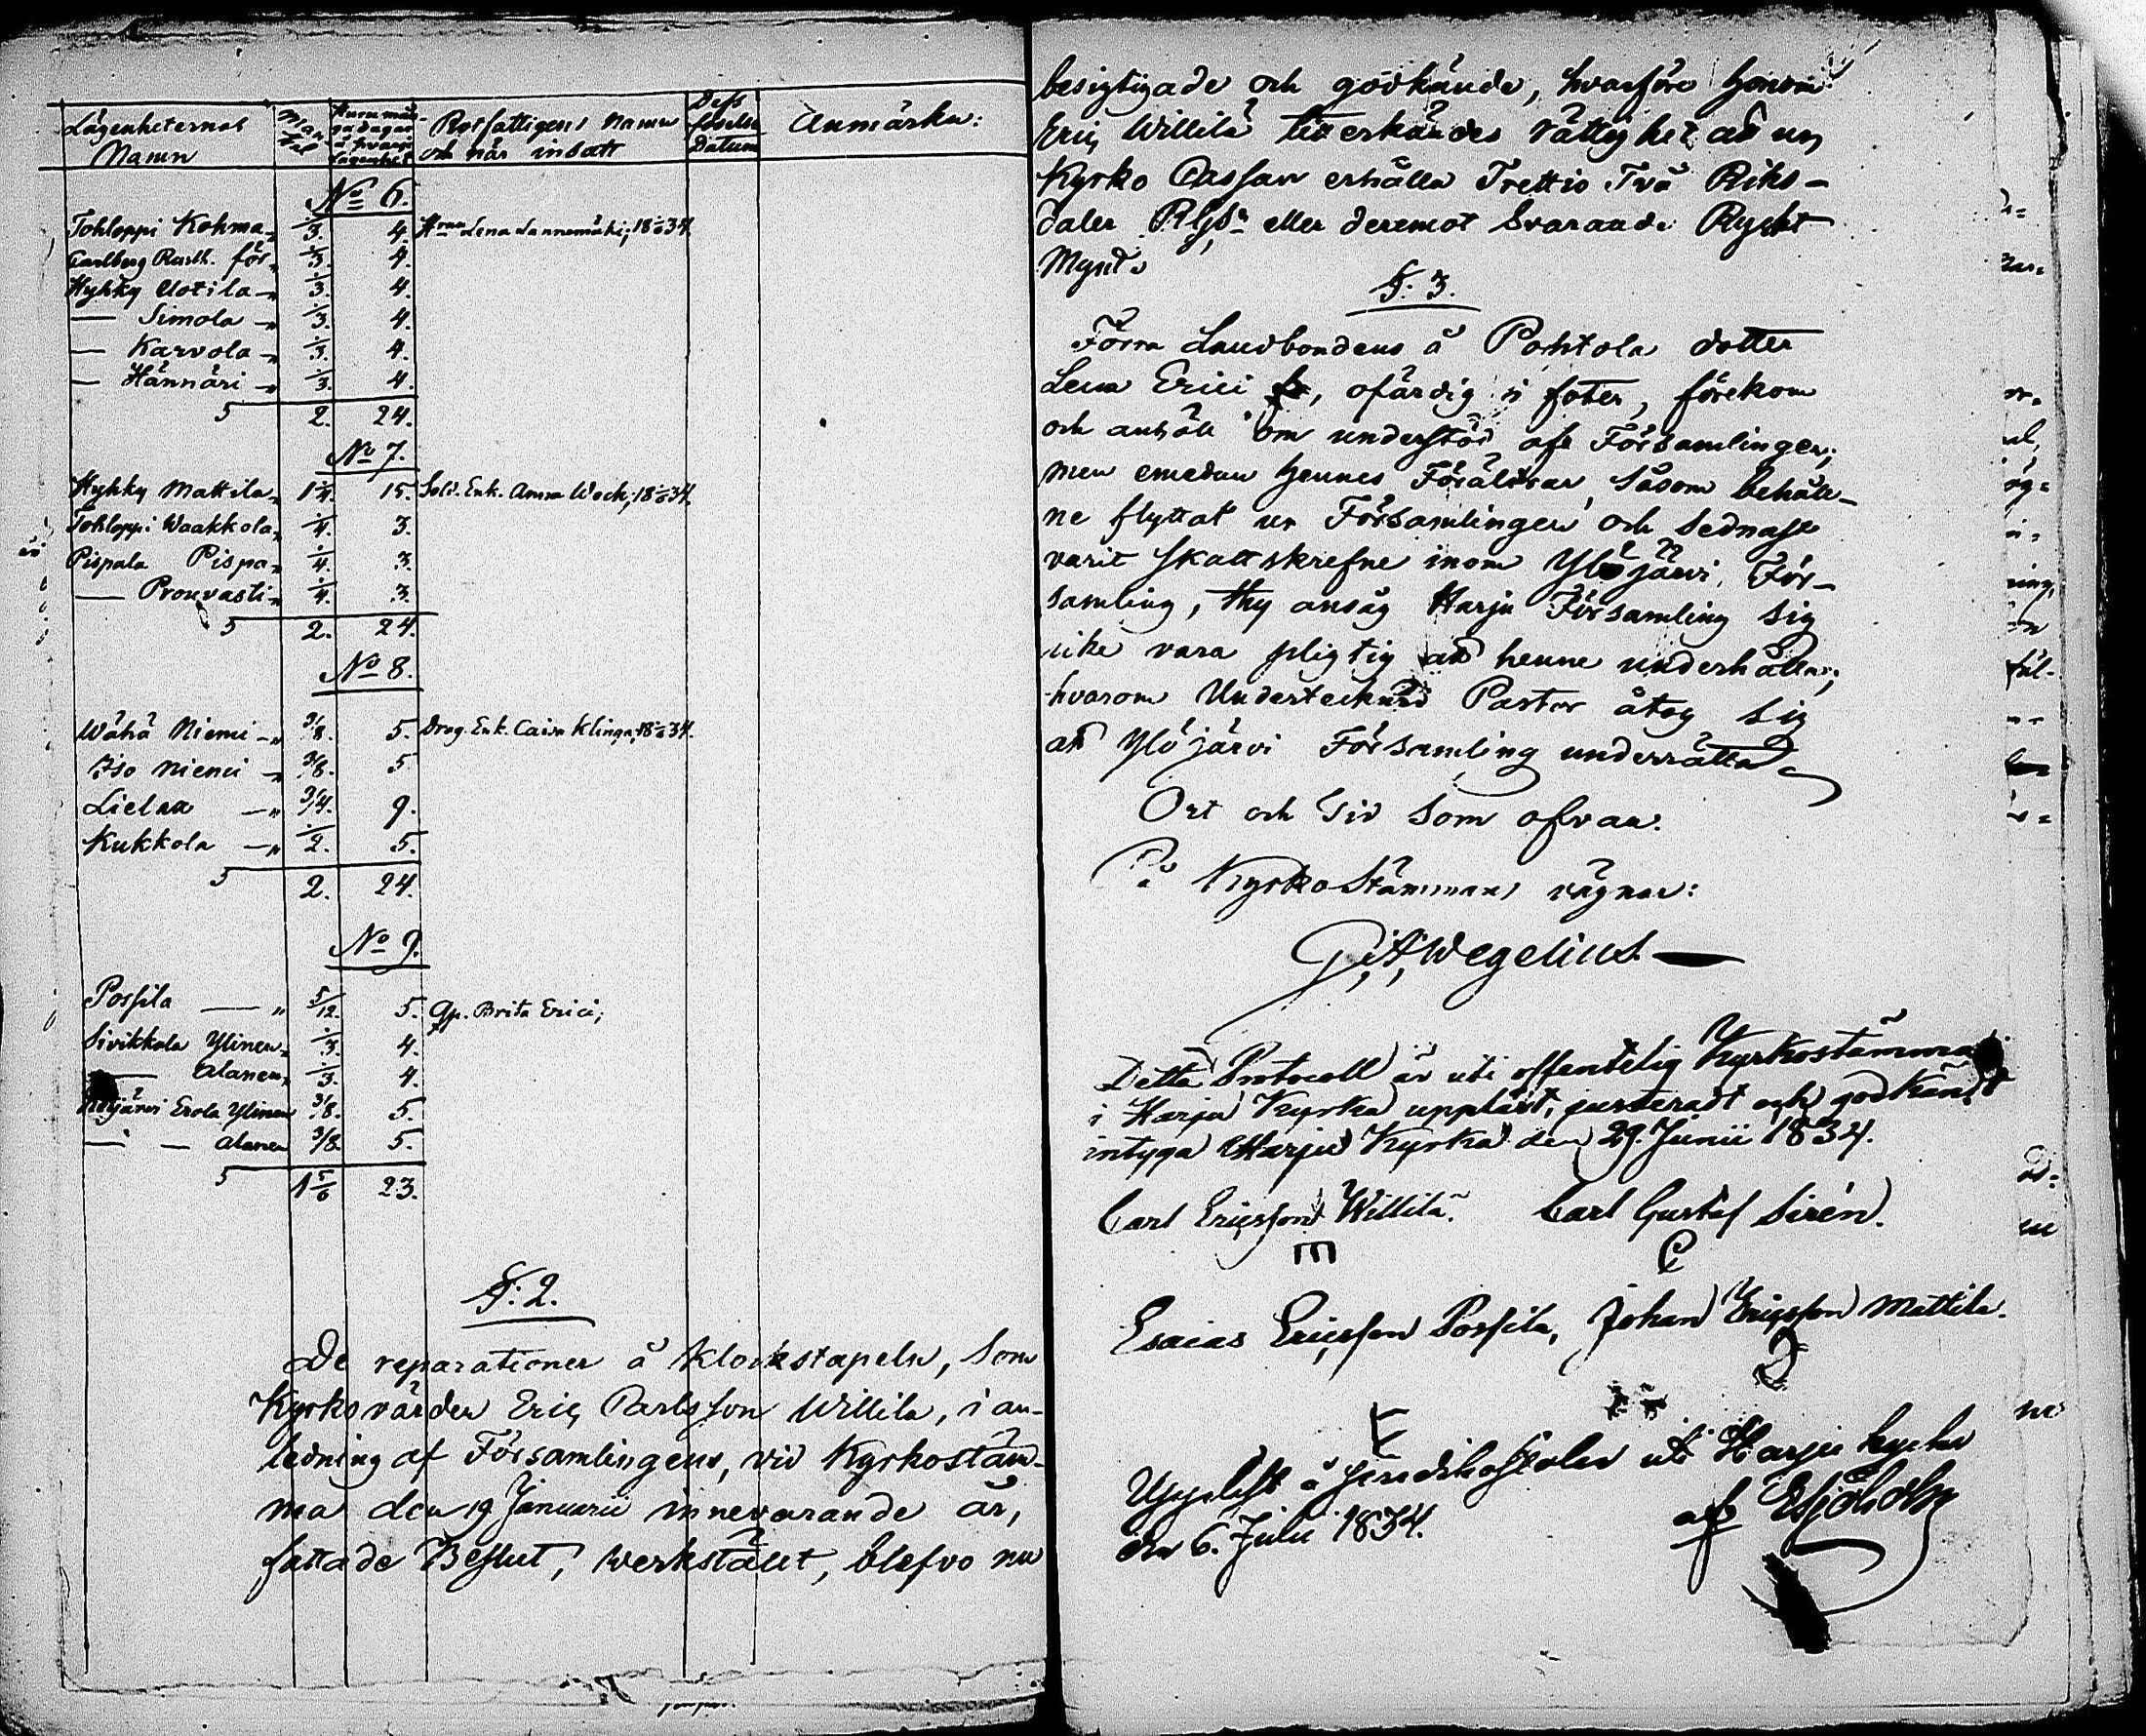 Lägenheternas Namn | Mantal | Huru många dagar å hvarje lägenhet | Rotfattigens Namn och när intatt | Dess födelse Datum | Anmärkn:
No 6.
Tohloppi Kohma „ 1/3. 4. Lena Lannemäki, 18 34.
Carlberg Rusth. för „ 1/3. 4.
Hyhky Uotila „ 1/3. 4.
— Simola „ 1/3. 4.
— Karvola „ 1/3. 4.
— Hännäri „ 1/3. 4.
5 2. 24.
No 7.
Hyhky Mattila „ 1 1/4. 15. Sold. Enk. Anna Wock, 18 34.
Tohloppi Waakkola „ 1/4. 3.
Pispala Pispa „ 1/4. 3.
— Prouvasti „ 1/4. 3.
5 2. 24.
No 8.
Wähä Niemi „ 3/8. 5. Drag. Enk. Caisa Klinga, 18 34.
Iso Niemi „ 3/8. 5
Lielax — „ 3/4. 9.
Kukkola — „ 1/2. 5.
5 2. 24.
No 9.
Possila — „ 5/12. 5. Qp. Brita Erici;
Sivikkala Ylinen „ 1/3. 4.
— Alanen „ 1/3. 4.
Erola Ylinen 3/8. 5.
— — Alanen 3/8. 5.
5 1 5/6 23.
§. 2.
De reparationer å Klockstapeln, som
Kyrkovärden Eric Carlsson Willila, i an-
ledning af Församlingens, vid Kyrkostäm-
ma den 19 Januarii innevarande år,
fattade Beslut, werkstält, blefvo nu
besigtigade och godkände, hvarföre honom
Eric Willilä tillerkändes rättighet att ur
Kyrko Cassan erhålla Trettio Två Riks-
daler Rgs eller deremot Svarande Ryskt
Mynt.
§. 3.
Förra Landbondens å Pohtola dotter
Lena Erici, ofärdig i föter, förekom
och anhöll om understöd af Församlingen;
men emedan hennes Föräldrar såsom behåll-
ne flyttat ur Församlingen och sednast
varit skattskrefne inom Ylöjärvi För-
samling, thy ansåg Harju Församling sig
icke vara pligtig att henne underhålla;
hvarom Undertecknad Pastor åtog sig
att Ylöjärvi Församling underrätta
Ort och Tid som ofvan.
På Kyrko Stämmans vägnar:
G. A. Wegelius.
Detta Protocoll är uti offentelig Kyrkostämma
i Harju Kyrka uppläst, justeradt och godkändt
intyga Harju Kyrka den 29. Junii 1834.
Carl Ericsson Willila. Carl Gustaf Sirén.
Esaias Ericsson Possila, Johan Ericsson Mattila.
Uppläst å Predikostolen uti Harju kyrka
den 6. Julii 1834. af Esjöholm